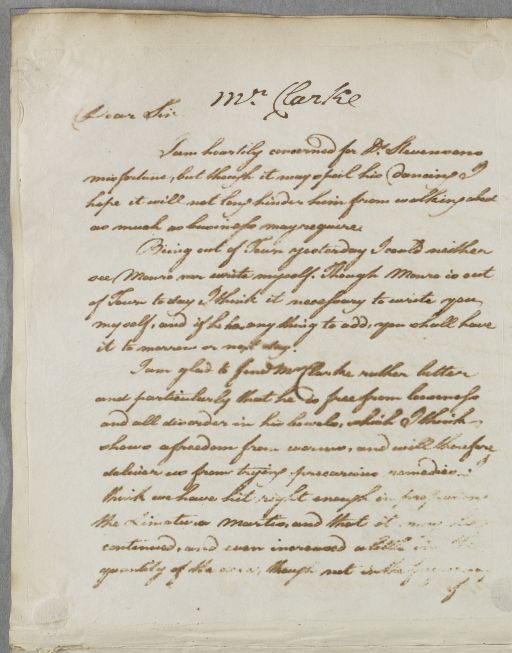 Mr Clarke
Dear Sir
I am heartily concerned for Dr Stevensons
misfortune, but though it may spoil his Dancing I
hope it will not long hinder him from walking about
as much as business may require.
Being out of Town yesterday I could neither
see Monro nor write myself. Though Monro is out
of Town to day I think it necessary to write you
myself, and if he has any thing to add, you shall have
it to morrow or next day.
I am glad to find Mr Clarke rather better
and particularly that he is free from looseness
and all disorder in his bowels, which I think
shows a freedom from worms, and will therefore
deliver us from trying precarious remedies. I
think we have hit right enough in
the and that it may
continued, and even increased a little in the
quantity of the though not in the
of